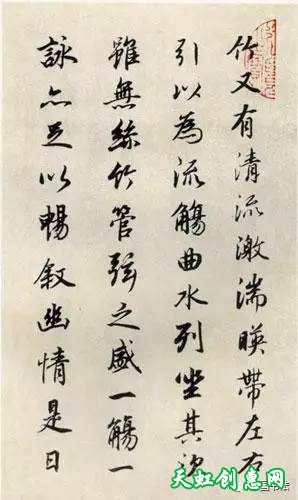 竹又有清流激湍暎帶左右
引以為流觴曲水列坐其次
雖無絲竹管弦之盛一觴一
詠亦足以暢叙幽情是日
天虹创意网